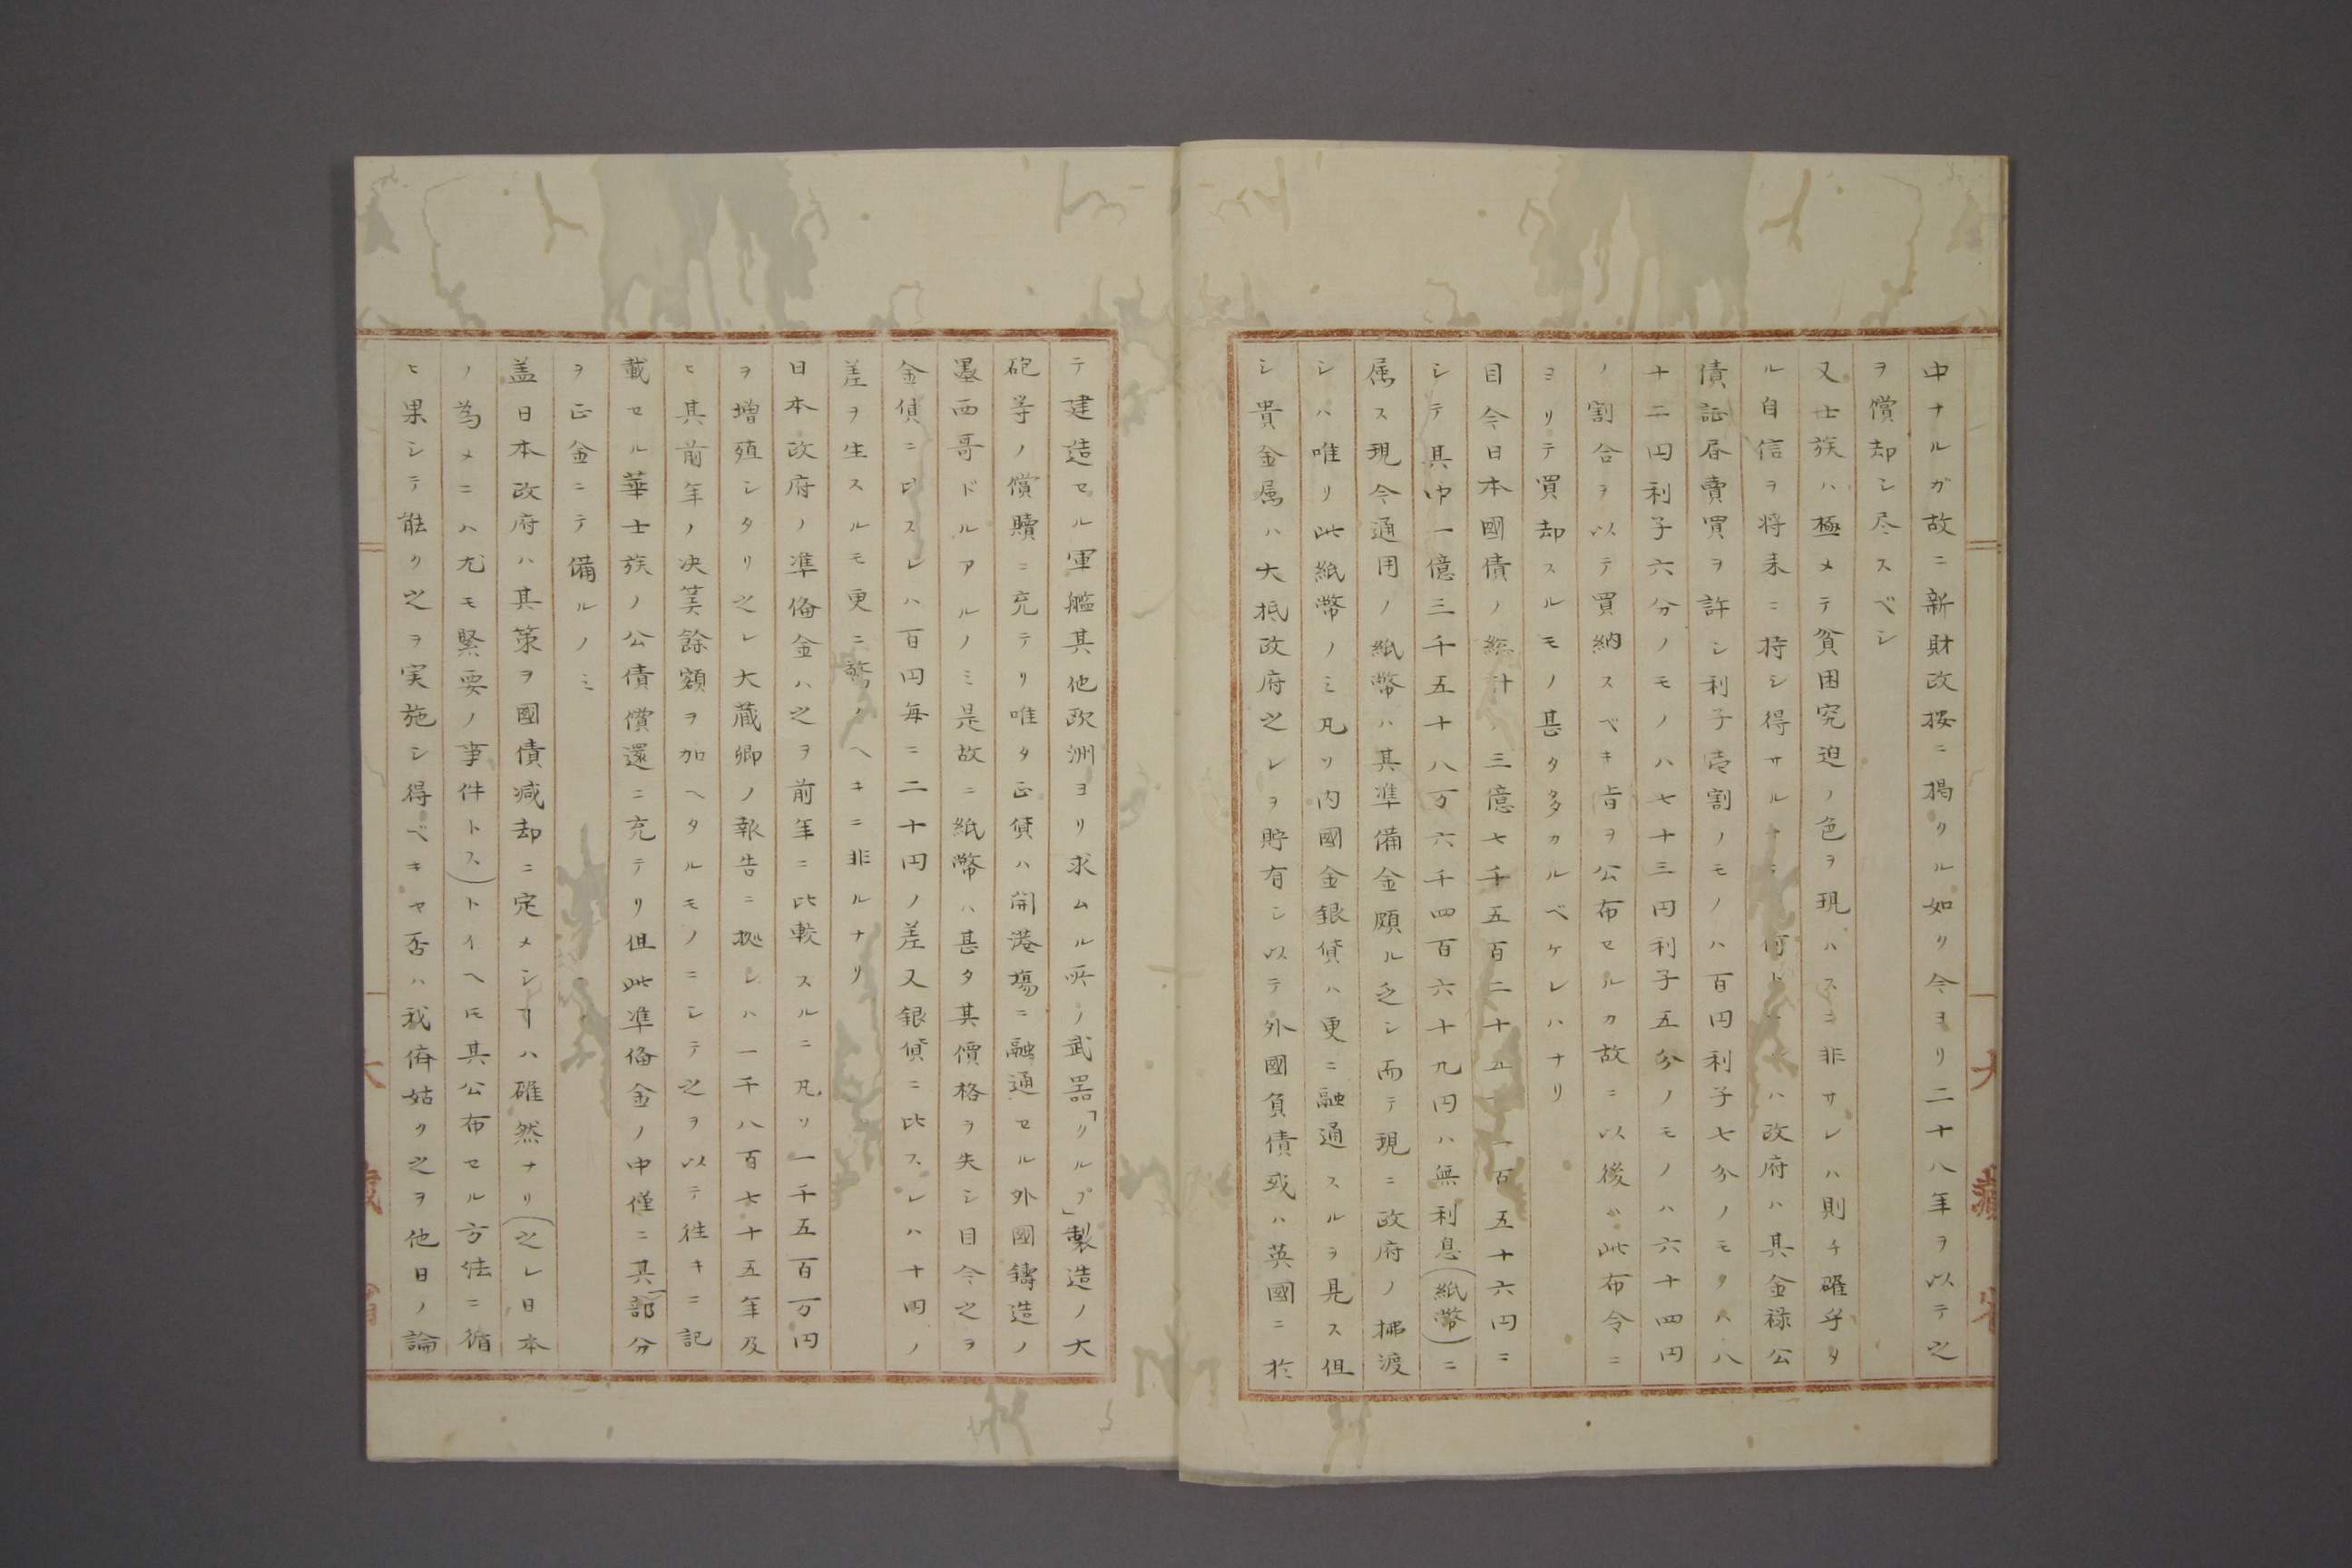 中ナルガ故ニ新財政按ニ掲クル如ク今ヨリ二十八年ヲ以テ之
ヲ償却シ尽スベシ
又士族ハ極メテ貧困究迫ノ色ヲ現ハスニ非サレハ則チ確乎タ
ル自信ヲ将来ニ持シ得サルナラン何トナレハ政府ハ其金禄公
債証書賣買ヲ許シ利子壱割ノモノハ百円利子七分ノモタハ八
十二円利子六分ノモノハ七十三円利子五分ノモノハ六十四円
ノ割合ヲ以テ買納スベキ旨ヲ公布セルカ故ニ以後ハ此布令ニ
ヨリテ買却スルモノ甚タ多カルベケレハナリ
目今日本國債ノ総計ハ三億七千五百二十五万一百五十六円ニ
シテ其中一億三千五十八万六千四百六十九円ハ無利息(紙幣)ニ
属ス現今通用ノ紙幣ハ其準備金頗ル乏シ而テ現ニ政府ノ拂渡
シハ唯リ此紙幣ノミ凡ソ内國金銀貨ハ更ニ融通スルヲ見ス但
シ貴金属ハ大抵政府之レヲ貯有シ以テ外國負債或ハ英國ニ於
テ建造セル軍艦其他欧洲ヨリ求ムル所ノ武器「クルプ」製造ノ大
砲等ノ償贖ニ充テリ唯タ正貨ハ開港場ニ融通セル外國鋳造ノ
墨西哥ドルアルノミ是故ニ紙幣ハ甚タ其價格ヲ失シ目今之ヲ
金貨ニ比スレハ百円毎ニ二十円ノ差又銀貨ニ比スレハ十四ノ
差ヲ生スルモ更ニ驚クヘキニ非ルナリ
日本政府ノ準備金ハ之ヲ前年ニ比較スルニ凡ソ一千五百万円
ヲ増殖シタリ之レ大蔵卿ノ報告ニ拠レハ一千八百七十五年及
ヒ其前年ノ决筭餘額ヲ加ヘタルモノニシテ之ヲ以テ往キニ記
載セル華士族ノ公債償還ニ充テリ但此準備金ノ中僅ニ其一部分
ヲ正金ニテ備ルノミ
盖日本政府ハ其策ヲ國債減却ニ定メシヿハ確然ナリ(之レ日本
ノ為メニハ尤モ緊要ノ事件トス)トイヘ𪜈其公布セル方法ニ循
ヒ果シテ能ク之ヲ実施シ得ベキヤ否ハ我儕姑ク之ヲ他日ノ論
大藏省